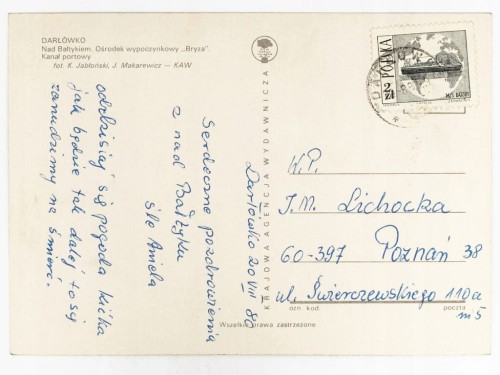 DARŁÓWKO
Nad Bałtykiem. Ośrodek wypoczynkowy „Bryza".
Kanał portowy
fot. K. Jabłoński, J. Makarewicz — KAW
Darłówko 20 VIII 80
Serdeczne pozdrowienia
z nad Bałtyku
śle Aniela
od dzisiaj się pogoda
jak będzie tak dalej to się
zanudzimy na śmierć.
KRAJOWA AGENCJA WYDAWNICZA
POLSKA
2 zł
M/S BATORY
W.P.
J.M. Lichocka
60-397 Poznań 38
ul. Świerczewskiego 110a
m 5
ozn. kod. poczta
Wszelkie prawa zastrzeżone